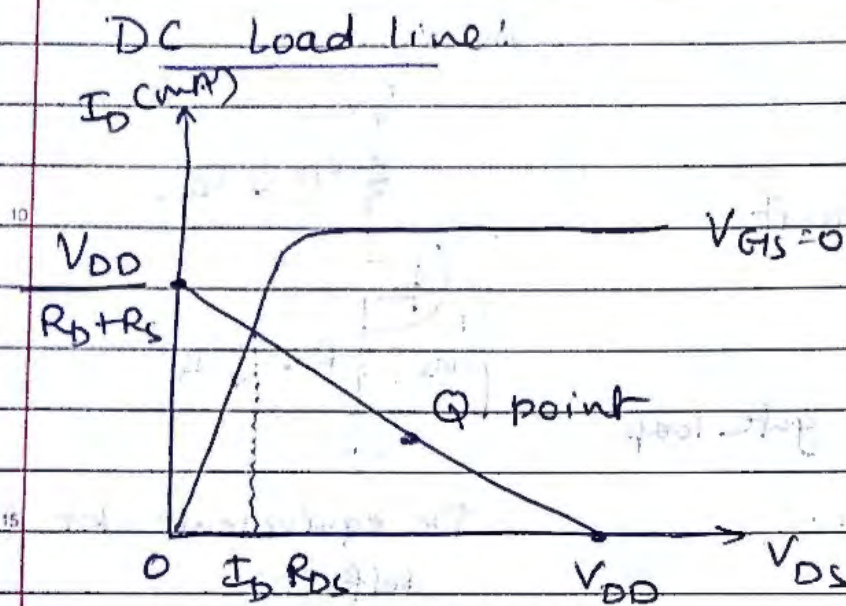 DC Load line:
I_D (mA)
10
V_GS=0
V_DD
R_D+R_S
Q point
15
0 I_D R_DS V_DD V_DS